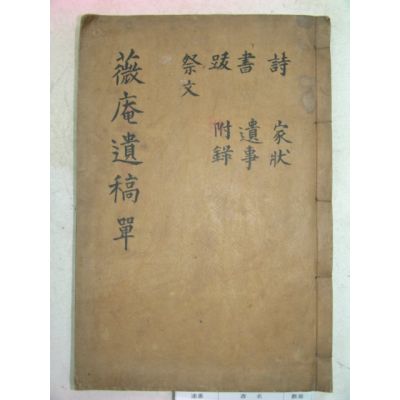 詩 家狀
書 遺事
跋 附錄
祭文
薇庵遺稿 單